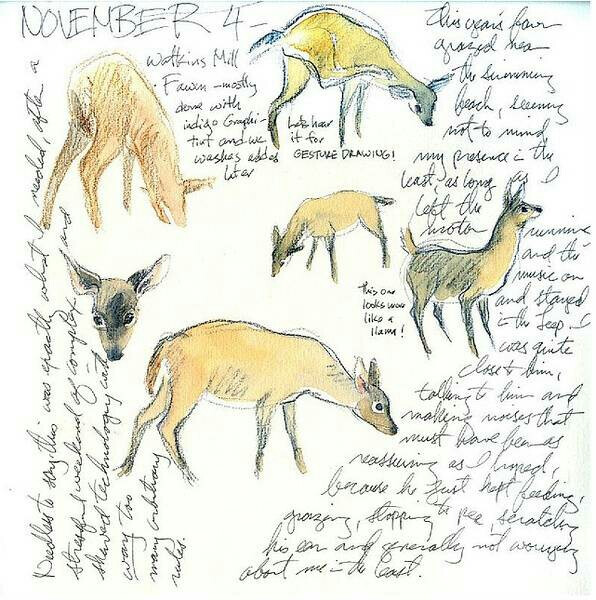 NOVEMBER 4-
Watkins Mill
Fawn - mostly
done with
indigo Graphi-
tint and we
washes added
later
Lets hear
it for
GESTURE DRAWING!
this year's fawn
grazed near
the swimming
beach, seeming
not to mind
my presence in the
least, as long as I
left the
motor
running
and the
music on
and stayed
in the Jeep. I
was quite
close to him,
talking to him and
making noises that
must have been as
reassuring as I hoped,
because he just kept feeding,
grazing, stopping to pee, scratching
his ear and generally not worrying
about me in the least.
this one
looks more
like a
llama!
Needless to say, this was exactly what I needed, after a
stressful weekend of complex and
shared technology with
way too
many arbitrary
rules.